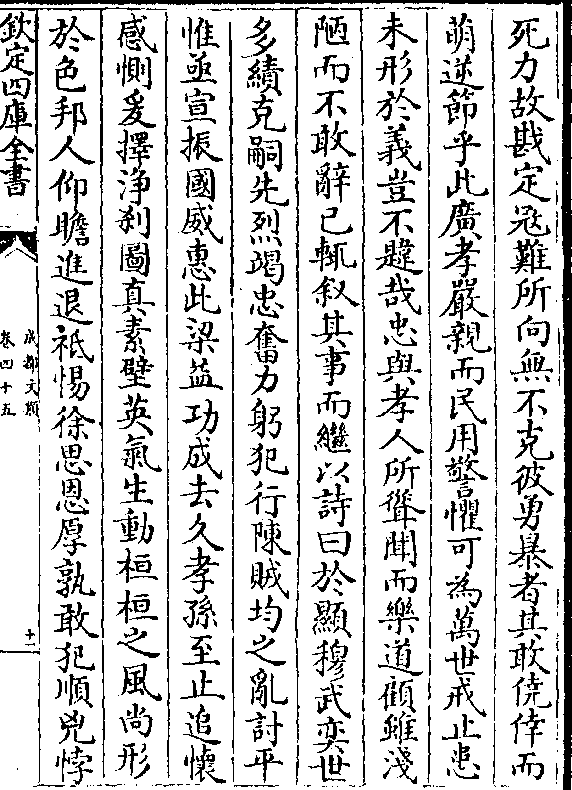 死力故戡定冦難所向無不克彼勇暴者其敢僥倖而
萌逆節乎此廣孝嚴親而民用警懼可為萬世戒止患
未形於義豈不韙哉忠與孝人所聳聞而樂道顧雖淺
陋而不敢辭已輒叙其事而繼以詩曰於顯穆武奕世
多績克嗣先烈竭忠奮力躬犯行陳賊均之亂討平
惟亟宣振國威惠此梁益功成去久孝孫至止追懷
感惻爰擇淨刹圖真素壁英氣生動桓桓之風尚形
於色邦人仰瞻進退祗惕徐思恩厚孰敢犯順兇悖
欽定四庫全書
成都文類
卷四十五
十一